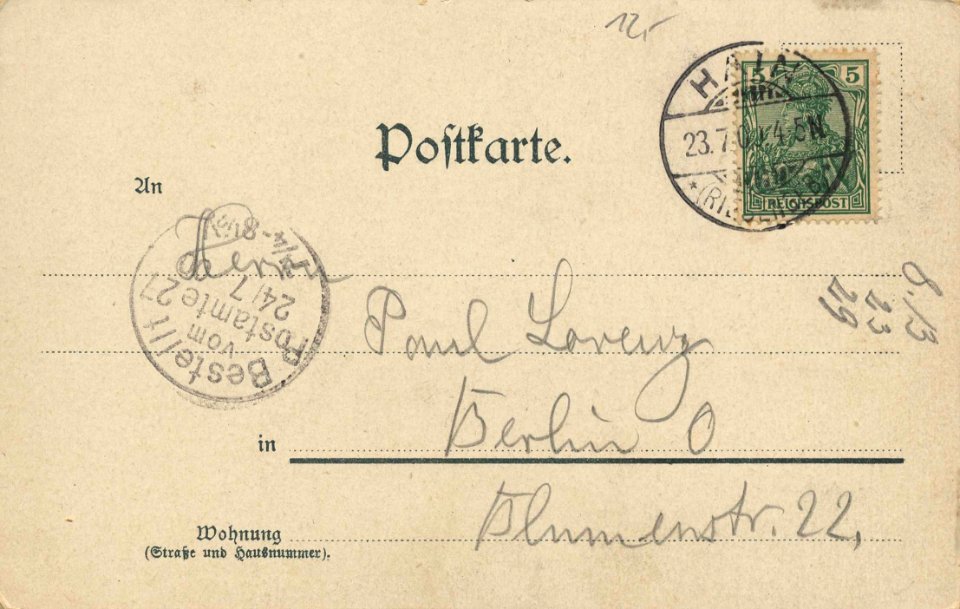 12,-
Postkarte.
HAIN
23.7.0
4-5N.
5 5
REICHSPOST
An
Herrn
Bestellt
vom
Postamte 27
24/7
Paul Lorenz
in Berlin O
Wohnung
(Straße und Hausnummer).
Blumenstr. 22,
23
29